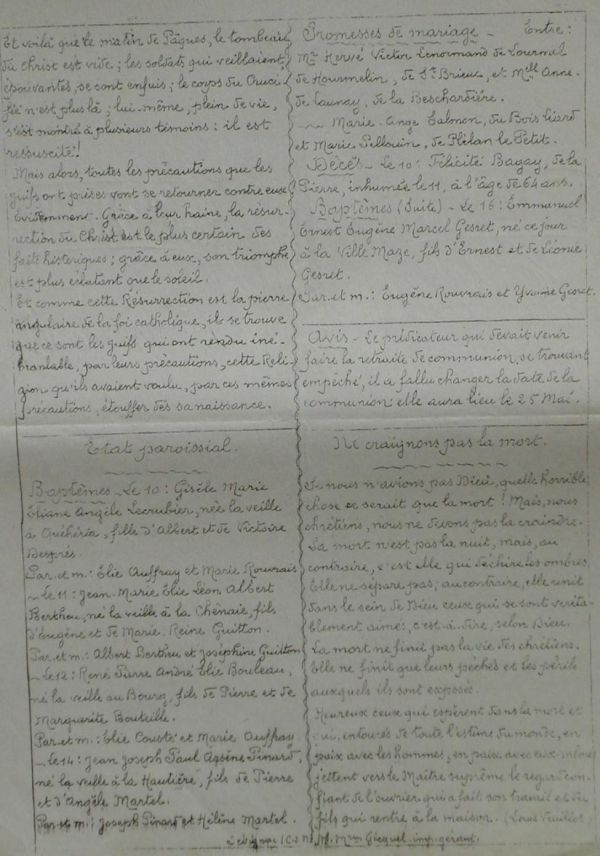 Et voilà que le matin de Pâques, le tombeau
du Christ est vide; les soldats qui veillaient,
épouvantés, se sont enfuis; le corps du Cruci-
fié n'est plus là; lui-même, plein de vie,
s'est montré à plusieurs témoins: il est
ressuscité!
Mais alors, toutes les précautions que les
juifs ont prises vont se retourner contre eux
Evidemment. Grâce à leur haine, la résur-
rection du Christ est le plus certain des
faits historiques; grâce à eux, son triomphe
est plus éclatant que le soleil.
Et comme cette Résurrection est la pierre
angulaire de la foi catholique, il se trouve
que ce sont les juifs qui ont rendu iné-
branlable, par leurs précautions, cette Reli-
gion qu'ils avaient voulu, par ces mêmes
précautions, étouffer dès sa naissance.
Etat paroissial.
Baptêmes - Le 10: Gisèle Marie
Eliane Angèle Lecrubier, née la veille
à Quéhéria, fille d'Albert et de Victoire
Després.
Par. et m.: Elie Auffray et Marie Rouvrais
~ Le 11: Jean Marie Elie Léon Albert
Bertheu, né la veille à la Chênaie, fils
d'Eugène et de Marie-Reine Guitton.
Par. et m.: Albert Bertheu et Joséphine Guitton
~ Le 12: René Pierre André Elie Bouleau,
né la veille au Bourg, fils de Pierre et de
Marguerite Bouteille.
Par. et m.: Elie Cousté et Marie Auffray
~ Le 14: Jean Joseph Paul Pinard,
né la veille à la Hautière, fils de Pierre
et d'Angèle Martel.
Par. et m.: Joseph Pinard et Hélène Martel.
Promesses de mariage - Entre:
Mr Hervé Victor Lenormand de Lourmel
de Hourmelin, de St Brieuc, et Melle Anne
de Launay, de la Beschardière.
~ Marie-Ange Salmon, du Bois Liard
et Marie Pellouin, de Plélan le Petit.
Décès - Le 10: Félicité Bagay, de la
Pierre, inhumée le 11, à l'âge de 64 ans.
Baptêmes (Suite) - Le 16: Emmanuel
Ernest Eugène Marcel Gesret, né ce jour
à la Ville Maze, fils d'Ernest et de
Gesret.
Par. et m.: Eugène Rouvrais et Yvonne Gesret.
Avis - Le prédicateur qui devait venir
faire la retraite de communion, se trouvant
empêché, il a fallu changer la date de la
communion: elle aura lieu le 25 Mai.
Ne craignons pas la mort.
Si nous n'avions pas Dieu, quelle horrible
chose ce serait que la mort! Mais, nous
chrétiens, nous ne devons pas la craindre.
La mort n'est pas la nuit, mais, au
contraire, c'est elle qui déchire les ombres.
Elle ne sépare pas; au contraire, elle unit
dans le sein de Dieu ceux qui se sont vérita-
blement aimés, c'est-à-dire, selon Dieu.
La mort ne finit pas la vie des chrétiens.
Elle ne finit que leurs péchés et les périls
auxquels ils sont exposés.
Heureux ceux qui espèrent dans la mort et
qui, entourés de toute l'estime du monde, en
paix avec les hommes, en paix avec eux-mêmes
jettent vers le Maître suprême le regard con-
fiant de l'ouvrier qui a fait son travail et du
fils qui rentre à la maison. (Louis Veuillot)
Gicquel imp. gérant.